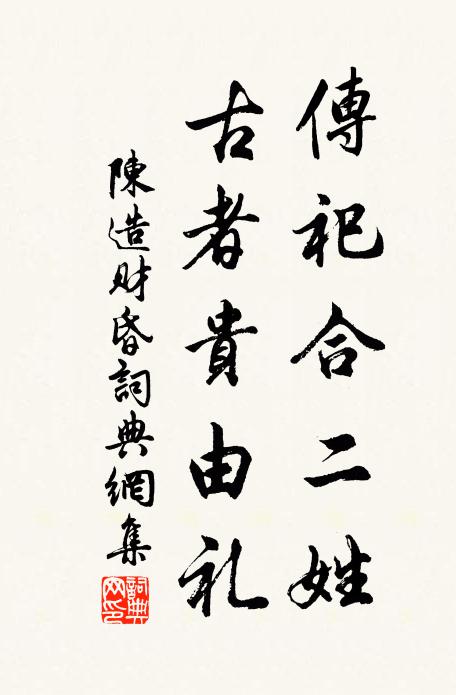 傳祀合二姓
古者貴由礼
陳造財昏詞典網集
詞典網印